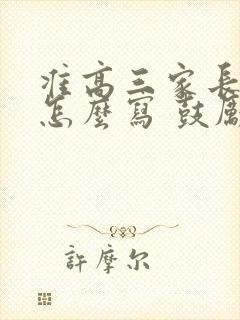 准高三家長
怎麼寫 鼓勵
許摩尔